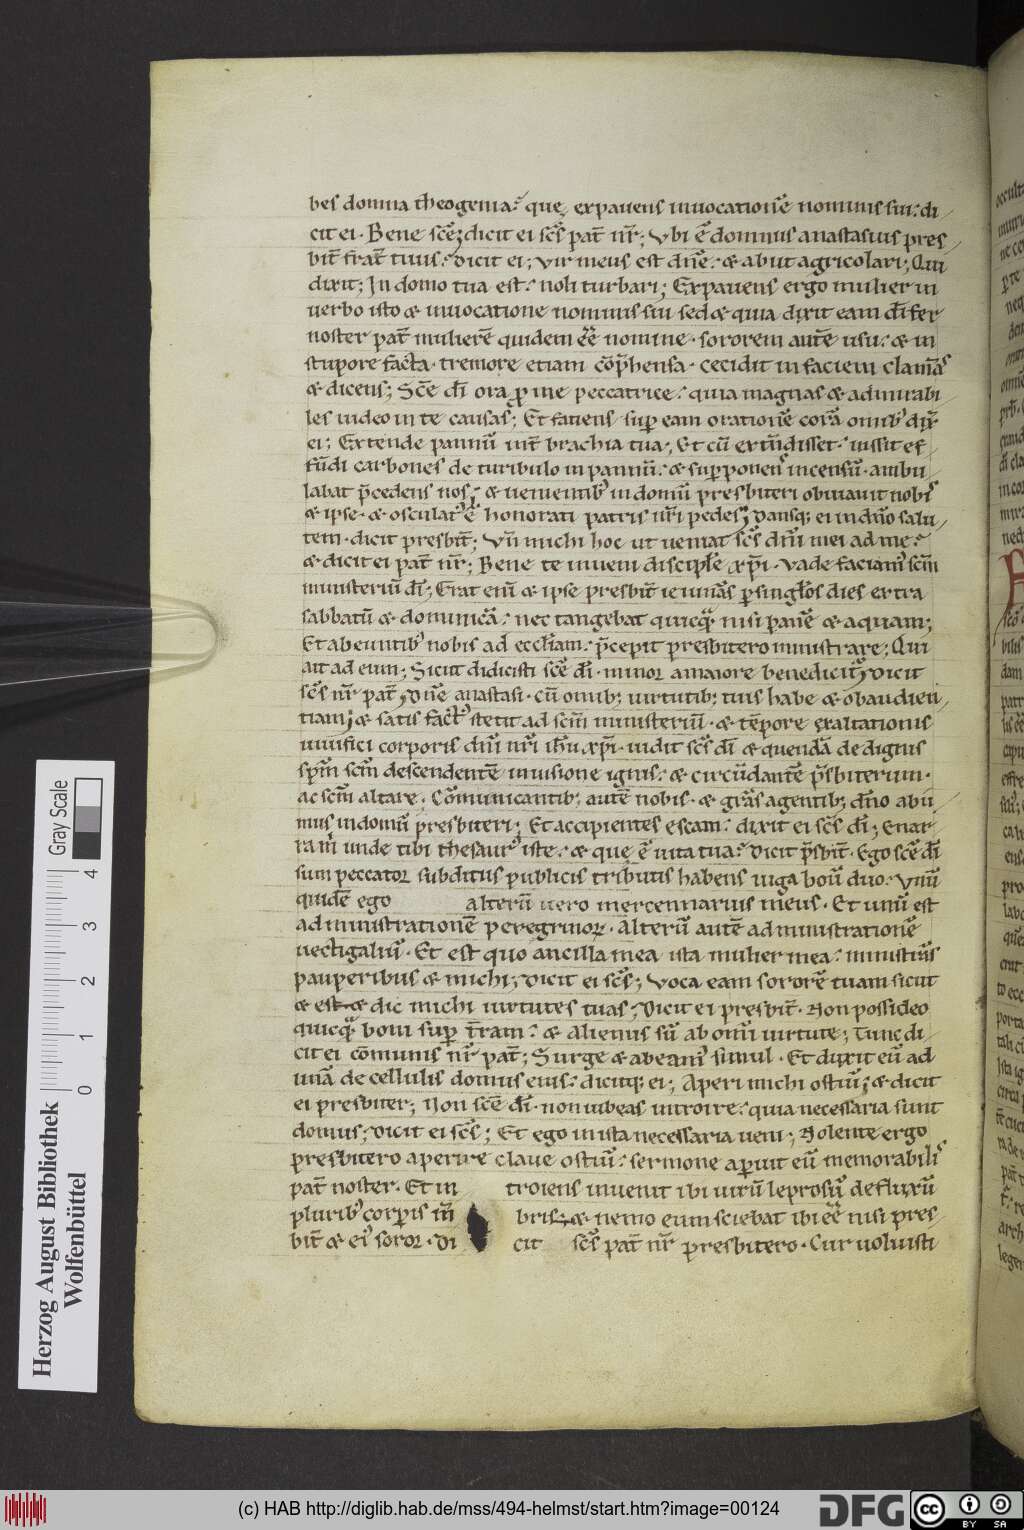 bes domna theogenia? que, expauens inuocatione nominis sui. di
cit ei. Bene sc̄e; dicit ei sc̄s pat̄ nr̄; Vbi ē domnus anastasius pres
bit̄ frat̄ tuus? Dicit ei; Vir meus est dn̄e. & abiit agricolari; Qui
dixit; In domo tua est. noli turbari; Expauens ergo mulier in
uerbo isto & inuocatione nominis sui sed & quia dixit eam dī fer
noster pat̄ mulierē quidem eē nomine. sororem autē usu. & in
stupore facta. tremore etiam cōp̄hensa. cecidit in faciem clamās
& dicens; Sc̄e dī ora pro me peccatrice. quia magnas & admirabi
les uideo in te causas; Et fatiens sup eam orationē corā omib' dix̄
ei; Extende pannū int̄ brachia tua; Et cū extēdisset. iussit ef
fūdi carbones de turibulo in pannū. & superponens incensū. ambu
labat p̄cedens nos; & uenientib' in domū presbiteri obuiauit nobis
& ipse. & osculat' ē honorati patris nr̄i pedes; Dansq; ei in dn̄o salu
tem. dicit presbit̄; Vn̄ michi hoc ut ueniat sc̄s dn̄i mei ad me?
& dicit ei pat̄ nr̄; Bene te inueni disciple xp̄i. Vade faciam' sc̄m
ministeriū dī; Erat enī & ipse presbit̄ ieiunās p singlos dies extra
sabbatū & dominicā. nec tangebat quicq̄ nisi panē & aquam;
Et abeuntib' nobis ad eccl̄iam. p̄cepit presbitero ministrare; Qui
ait ad eum; Sicut didicisti sc̄e dī. minor a maiore benedicit; Dicit
sc̄s nr̄ pat̄; Dn̄e anastasi. cū omib; uirtutib; tuis habe & obaudien
tiam; & satis fact' stetit ad sc̄m ministeriū. & tēpore exaltationis
uiuifici corporis dn̄i nr̄i ih̄u xp̄i. uidit sc̄s dī & quendā de dignis
sp̄m sc̄m descendentē in uisione ignis. & circūdantē p̄sbiterum.
ac sc̄m altare. Cōmunicantib; autē nobis. & gr̄as agentib; dn̄o abii
mus in domū presbiteri; Et accipientes escam. dixit ei sc̄s dī; Enar
ra m̄ unde tibi thesaur' iste. & que ē uita tua? Dicit p̄sbit̄. Ego sc̄e dī
sum peccator subditus publicis tributis habens iuga boū duo. Vnū
quidē ego alterū uero mercennarius meus. Et unū est
ad ministrationē peregrinor. Alterū autē ad ministrationē
uectigaliū. Et est quo ancilla mea ista mulier mea. ministrās
pauperibus & michi; Dicit ei sc̄s; Voca eam sororē tuam sicut
& est & dic michi uirtutes tuas; Dicit ei presbit̄. Non possideo
quicq̄ boni sup t̄ram. & alienus sū ab omi uirtute; Tunc di
cit ei cōmunis nr̄ pat̄; Surge & abeam' simul. Et duxit eū ad
unā de cellulis domus eius. dicitq; ei; Aperi michi ostiū; & dicit
ei presbiter; Non sc̄e dī. non iubeas introire. quia necessaria sunt
domus; Dicit ei sc̄s; Et ego in ista necessaria ueni; Nolente ergo
presbitero aperire claue ostiū. sermone aperuit eū memorabilis
pat̄ noster. Et in troiens inuenit ibi uirū leprosū defluxū
plurib' corpis m̄ bris. & nemo eum sciebat ibi eē nisi pres
bit̄ & ei' soror. Di cit sc̄s pat̄ nr̄ presbitero. Cur uoluisti
Herzog August Bibliothek
Wolfenbüttel
0 1 2 3 4
Gray Scale
(c) HAB http://diglib.hab.de/mss/494-helmst/start.htm?image=00124
DFG
cc BY SA